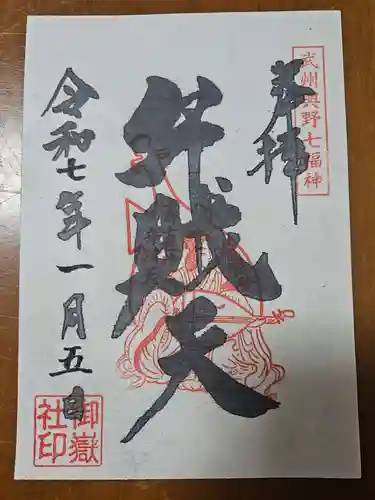 武州與野七福神
奉拝
弁財天
令和七年一月五日
御嶽社印